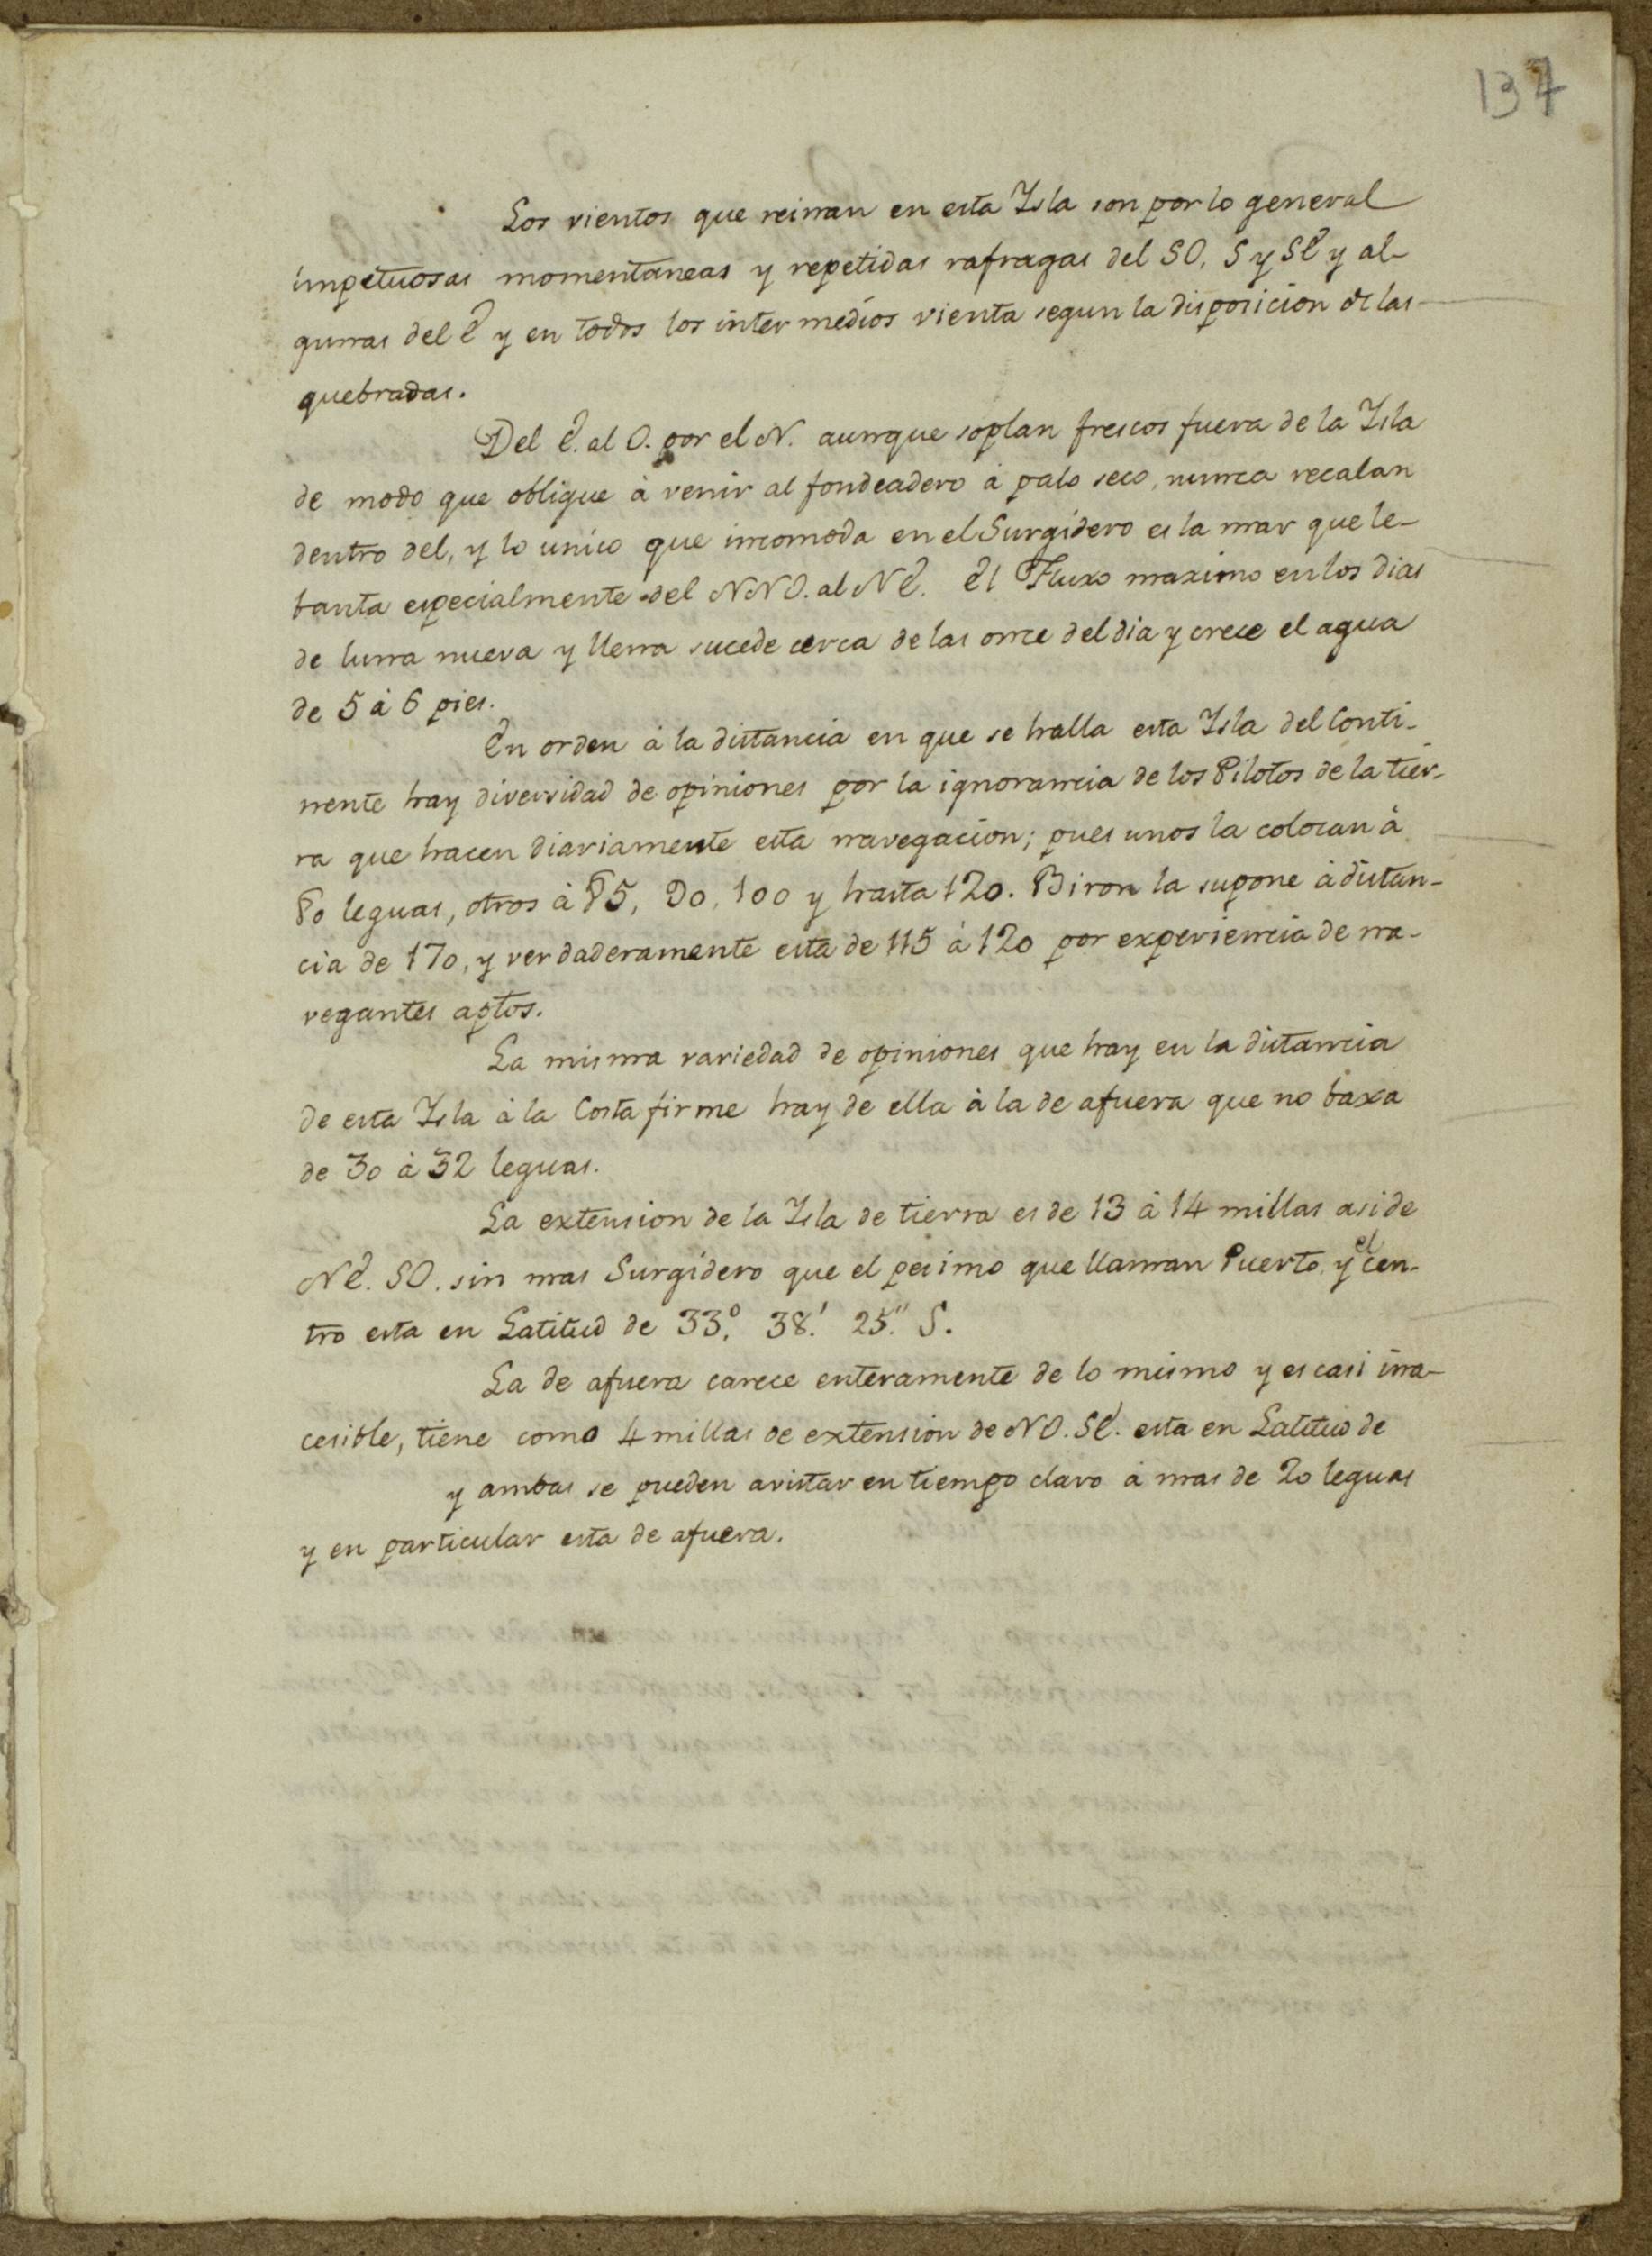 137
Los vientos que reinan en esta Isla son por lo general
impetuosas momentaneas y repetidas rafragas del SO. S y SE y al-
gunas del E y en todos los intermedios vienta segun la disposicion de las
quebradas.
Del E. al O. por el N. aunque soplan frescos fuera de la Isla
de modo que obligue à venir al fondeadero à palo seco, nunca recalan
dentro del, y lo unico que incomoda en el Surgidero es la mar que le-
banta especialmente del NNO. al NE. El Fluxo maximo en los dias
de luna nueva y llena sucede cerca de las once del dia y crece el agua
de 5 à 6 pies.
En orden à la distancia en que se halla esta Isla del Conti-
nente hay diversidad de opiniones por la ignorancia de los Pilotos de la tier-
ra que hacen diariamente esta navegacion; pues unos la colocan à
80 leguas, otros à 85, 90, 100 y hasta 120. Biron la supone à distan-
cia de 170, y verdaderamente esta de 115 à 120 por experiencia de na-
vegantes aptos.
La misma variedad de opiniones que hay en la distancia
de esta Isla à la Costa firme hay de ella à la de afuera que no baxa
de 30 à 32 leguas.
La extension de la Isla de tierra es de 13 à 14 millas asi de
NE. SO. sin mas Surgidero que el pesimo que llaman Puerto, y el cen-
tro esta en Latitud de 33.° 38.' 25." S.
La de afuera carece enteramente de lo mismo y es casi ina-
cesible, tiene como 4 millas de extension de NO. SE. esta en Latitud de
y ambas se pueden avistar en tiempo claro à mas de 20 leguas
y en particular esta de afuera.